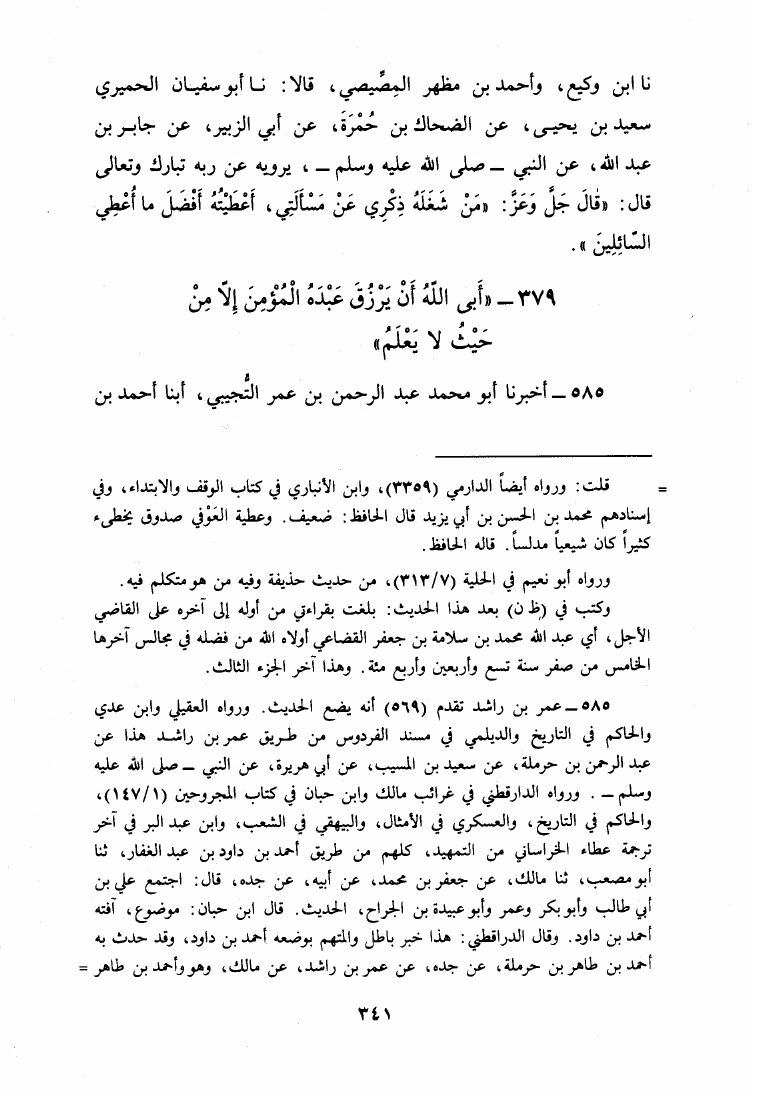 نا ابن وكيع، وأحمد بن مظهر المِصِّيصي، قالا: نا أبو سفيان الحميري
سعيد بن يحيى، عن الضحاك بن حُمْرَةَ، عن أبي الزبير، عن جابر بن
عبد الله، عن النبي ـ صلى الله عليه وسلم ـ، يرويه عن ربه تبارك وتعالى
قال: «قَالَ جَلَّ وَعَزَّ: «مَنْ شَغَلَهُ ذِكْرِي عَنْ مَسْأَلَتِي، أَعْطَيْتُهُ أَفْضَلَ ما أُعْطِي
السَّائِلِينَ».
٣٧٩ ـ «أَبى اللَّهُ أَنْ يَرْزُقَ عَبْدَهُ الْمُؤْمِنَ إِلَّا مِنْ
حَيْثُ لا يَعْلَمُ»
٥٨٥ ـ أخبرنا أبو محمد عبد الرحمن بن عمر التُّجيبي، أبنا أحمد بن
= قلت: ورواه أيضاً الدارمي (٣٣٥٩)، وابن الأنباري في كتاب الوقف والابتداء، وفي
إسنادهم محمد بن الحسن بن أبي يزيد قال الحافظ: ضعيف. وعطية العَوْفي صدوق يخطىء
كثيراً كان شيعياً مدلساً. قاله الحافظ.
ورواه أبو نعيم في الحلية (٣١٣/٧)، من حديث حذيفة وفيه من هو متكلم فيه.
وكتب في (ظ ن) بعد هذا الحديث: بلغت بقراءتي من أوله إلى آخره على القاضي
الأجل، أي عبد الله محمد بن سلامة بن جعفر القضاعي أولاه الله من فضله في مجالس آخرها
الخامس من صفر سنة تسع وأربعين وأربع مئة. وهذا آخر الجزء الثالث.
٥٨٥ ـ عمر بن راشد تقدم (٥٦٩) أنه يضع الحديث. ورواه العقيلي وابن عدي
والحاكم في التاريخ والديلمي في مسند الفردوس من طريق عمر بن راشد هذا عن
عبد الرحمن بن حرملة، عن سعيد بن المسيب، عن أبي هريرة، عن النبي ـ صلى الله عليه
وسلم ـ. ورواه الدارقطني في غرائب مالك وابن حبان في كتاب المجروحين (١٤٧/١)،
والحاكم في التاريخ، والعسكري في الأمثال، والبيهقي في الشعب، وابن عبد البر في آخر
ترجمة عطاء الخراساني من التمهيد، كلهم من طريق أحمد بن داود بن عبد الغفار، ثنا
أبو مصعب، ثنا مالك، عن جعفر بن محمد، عن أبيه، عن جده، قال: اجتمع علي بن
أبي طالب وأبو بكر وعمر وأبو عبيدة بن الجراح، الحديث. قال ابن حبان: موضوع، آفته
أحمد بن داود. وقال الدراقطني: هذا خبر باطل والمتهم بوضعه أحمد بن داود، وقد حدث به
أحمد بن طاهر بن حرملة، عن جده، عن عمر بن راشد، عن مالك، وهو وأحمد بن طاهر =
٣٤١